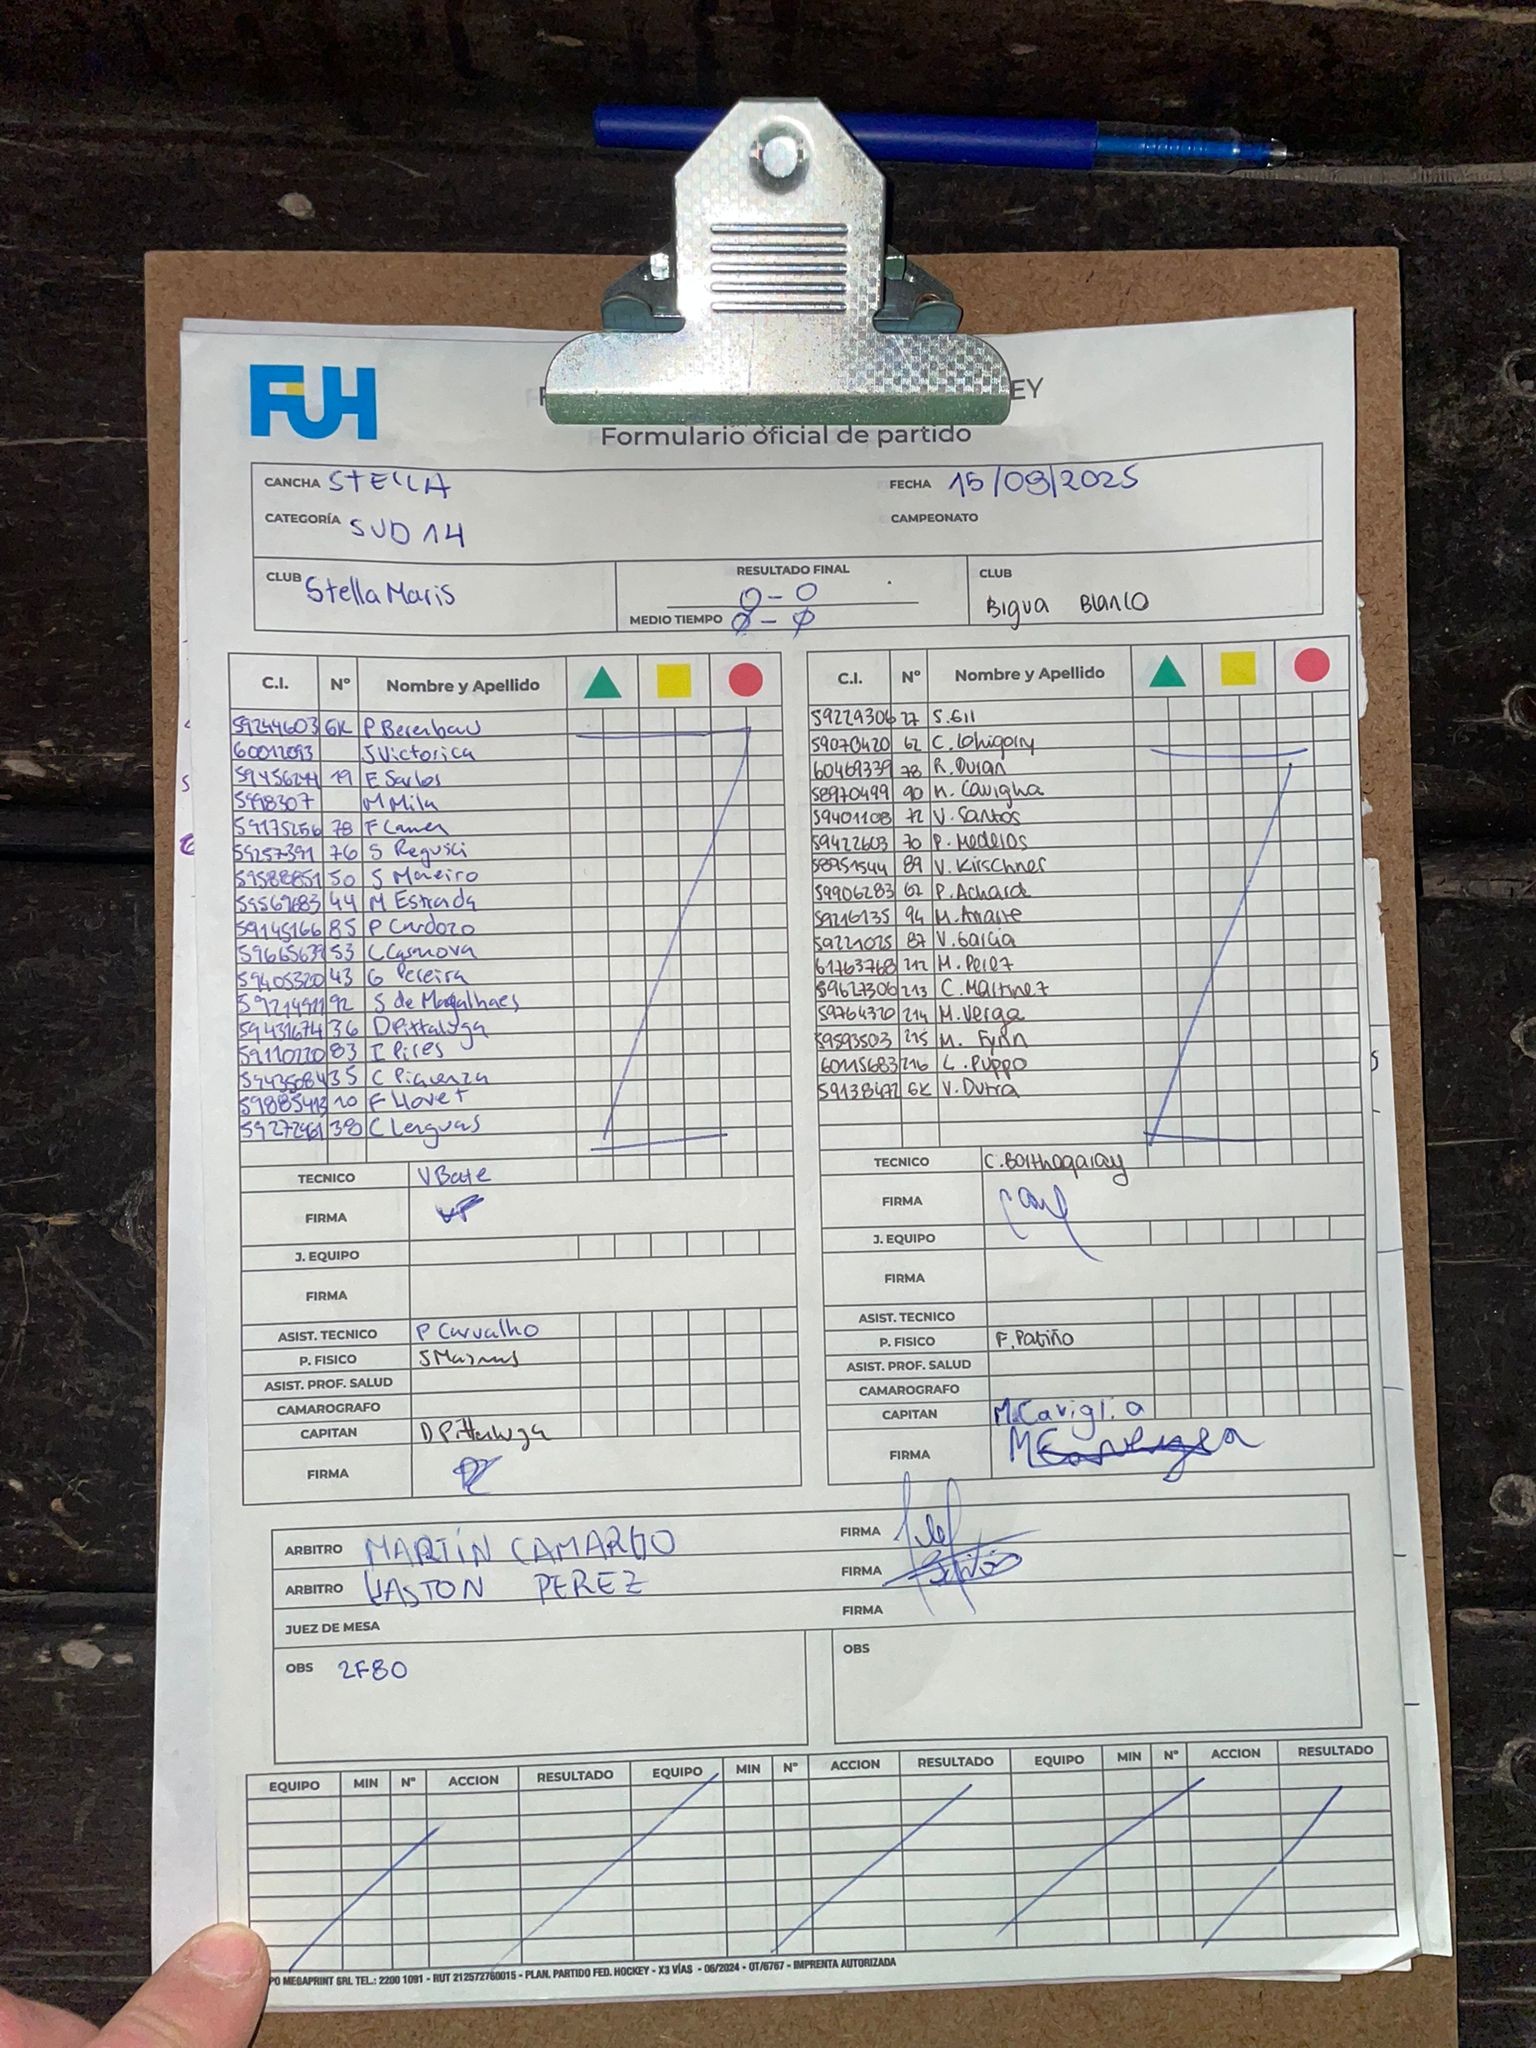 FUH
EY
Formulario oficial de partido
CANCHA STELLA FECHA 15/09/2025
CATEGORÍA SUB 14 CAMPEONATO
CLUB Stella Maris RESULTADO FINAL 0-0 CLUB Bigua Blanco
MEDIO TIEMPO 0-0
C.I. Nº Nombre y Apellido
59244603 GK P Berenbau
60012093 J Victorica
19 E Sarlos
5998307 M Mila
59175256 78 F
59257391 76 S Regusci
59588851 50 S Moreiro
59567683 44 M Estrada
59145166 85 P Cardozo
53 C Casanova
59405320 43 G Pereira
92 S de Magalhaes
59431674 36 D Pittaluga
59110220 83 I Pires
59435084 35 C Piacenza
59885413 20 F Llovet
59272461 C Lenguas
TECNICO V Bate
FIRMA
J. EQUIPO
FIRMA
ASIST. TECNICO P Carvalho
P. FISICO
ASIST. PROF. SALUD
CAMAROGRAFO
CAPITAN D Pittaluga
FIRMA
C.I. Nº Nombre y Apellido
59229306 27 S. Gil
59070420 62 C.
60469339 78 R. Duran
58970499 90 M. Caviglia
59401108 72 V. Santos
59422603 70 P. Medeiros
58951544 89 V. Kirschner
59906283 62 P. Achard
59216135 94 M.
59221025 87 V. Garcia
61763768 212 M. Perez
59627306 213 C. Martinez
59764320 214 M. Verga
59593503 215 M. Fynn
60115683 216 L. Puppo
59138472 GK V. Dutra
TECNICO C. Borthagaray
FIRMA
J. EQUIPO
FIRMA
ASIST. TECNICO
P. FISICO F. Patiño
ASIST. PROF. SALUD
CAMAROGRAFO
CAPITAN M. Caviglia
FIRMA
ARBITRO MARTÍN CAMARGO FIRMA
ARBITRO GASTON PEREZ FIRMA
JUEZ DE MESA FIRMA
OBS 2F80 OBS
EQUIPO MIN Nº ACCION RESULTADO EQUIPO MIN Nº ACCION RESULTADO EQUIPO MIN Nº ACCION RESULTADO
PO MEGAPRINT SRL TEL.: 2200 1091 - RUT 212572760015 - PLAN. PARTIDO FED. HOCKEY - X3 VÍAS - 06/2024 - OT/6767 - IMPRENTA AUTORIZADA